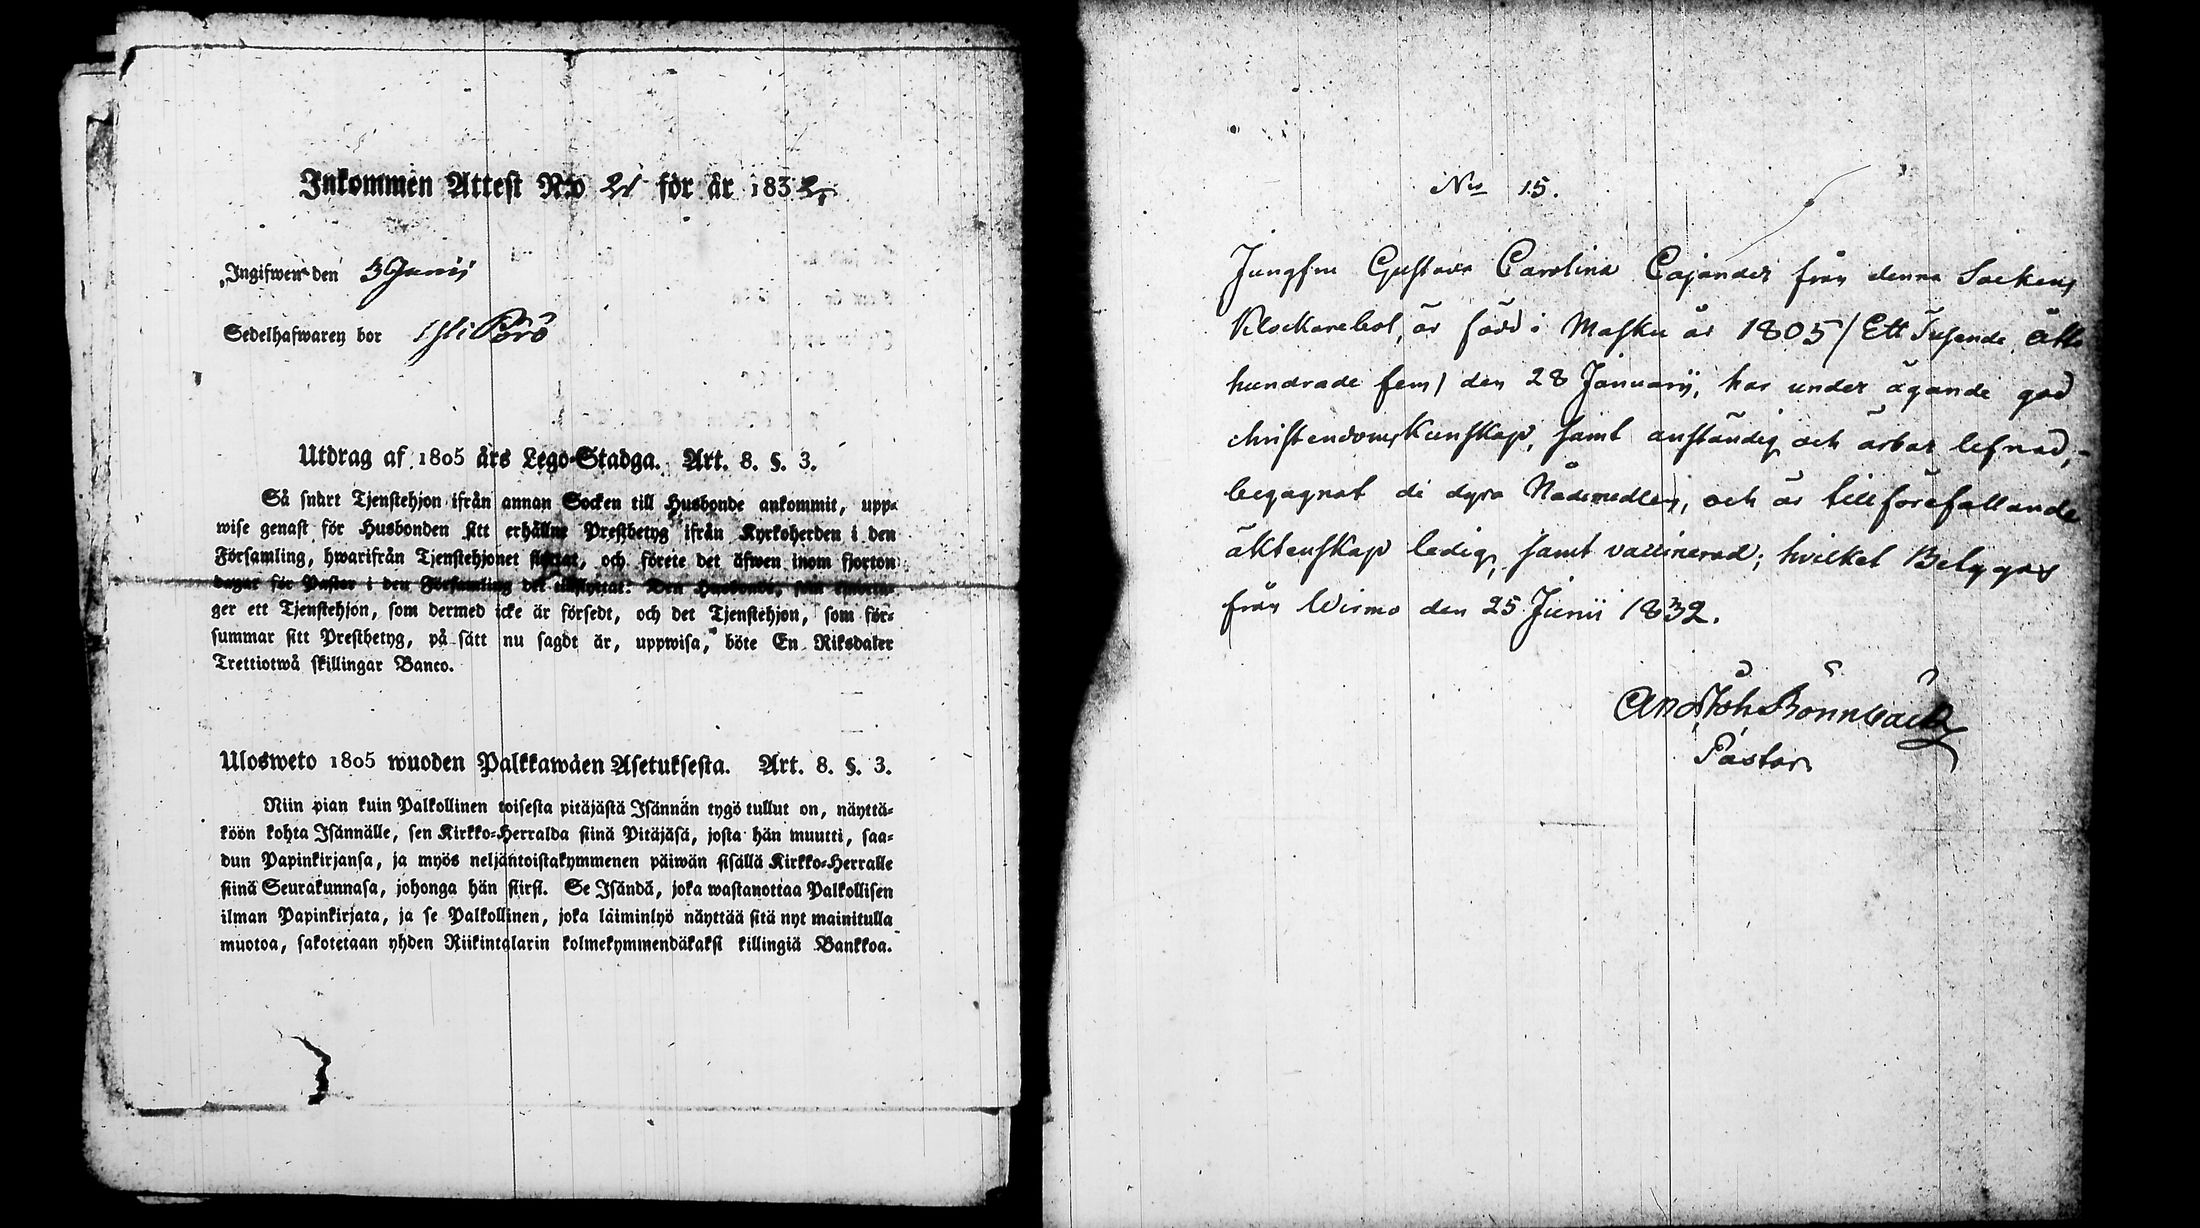 Inkommen Attest N:o 21 för år 1832,
Ingifwen den 3 Junii
Sedelhafwaren bor
Utdrag af 1805 års Lego-Stadga. Art. 8. §. 3.
Så snart Tjenstehjon ifrån annan Socken till Husbonde ankommit, upp-
wise genast för Husbonden sitt erhållne Prestbetyg ifrån Kyrkoherden i den
Församling, hwarifrån Tjenstehjonet flyttat, och förete det äfwen inom fjorton
dagar för Pastor i den Församling det inflyttat. Den Husbonde, som emotta-
ger ett Tjenstehjon, som dermed icke är försedt, och det Tjenstehjon, som för-
summar sitt Prestbetyg, på sätt nu sagdt är, uppwisa, böte En Riksdaler
Trettiotwå skillingar Banco.
Ulosweto 1805 wuoden Palkkawäen Asetuksesta. Art. 8. §. 3.
Niin pian kuin Palkollinen toisesta pitäjästä Isännän tygö tullut on, näyttä-
köön kohta Isännälle, sen Kirkko-Herralda siinä Pitäjäsä, josta hän muutti, saa-
dun Papinkirjansa, ja myös neljäntoistakymmenen päiwän sisällä Kirkko-Herralle
siinä Seurakunnasa, johonga hän siirsi. Se Isändä, joka wastanottaa Palkollisen
ilman Papinkirjata, ja se Palkollinen, joka laiminlyö näyttää sitä nyt mainitulla
muotoa, sakotetaan yhden Riikintalarin kolmekymmendäkaksi killingiä Bankkoa.
No 15.
Jungfru Gustava Carolina Cajander från denna Sockens
Klockarebol, är född i Masku år 1805 / Ett Tusende åtta
hundrade fem / den 28 Januarii, har under ägande god
christendomskunskap, samt anständig och ärbar lefnad,
begagnat de dyra Nådemedlen, och är till förefallande
äktenskap ledig, samt vaccinerad; hvilket Betygas
från Wirmo den 25 Junii 1832.
And Joh Bönnbäck
Pastor